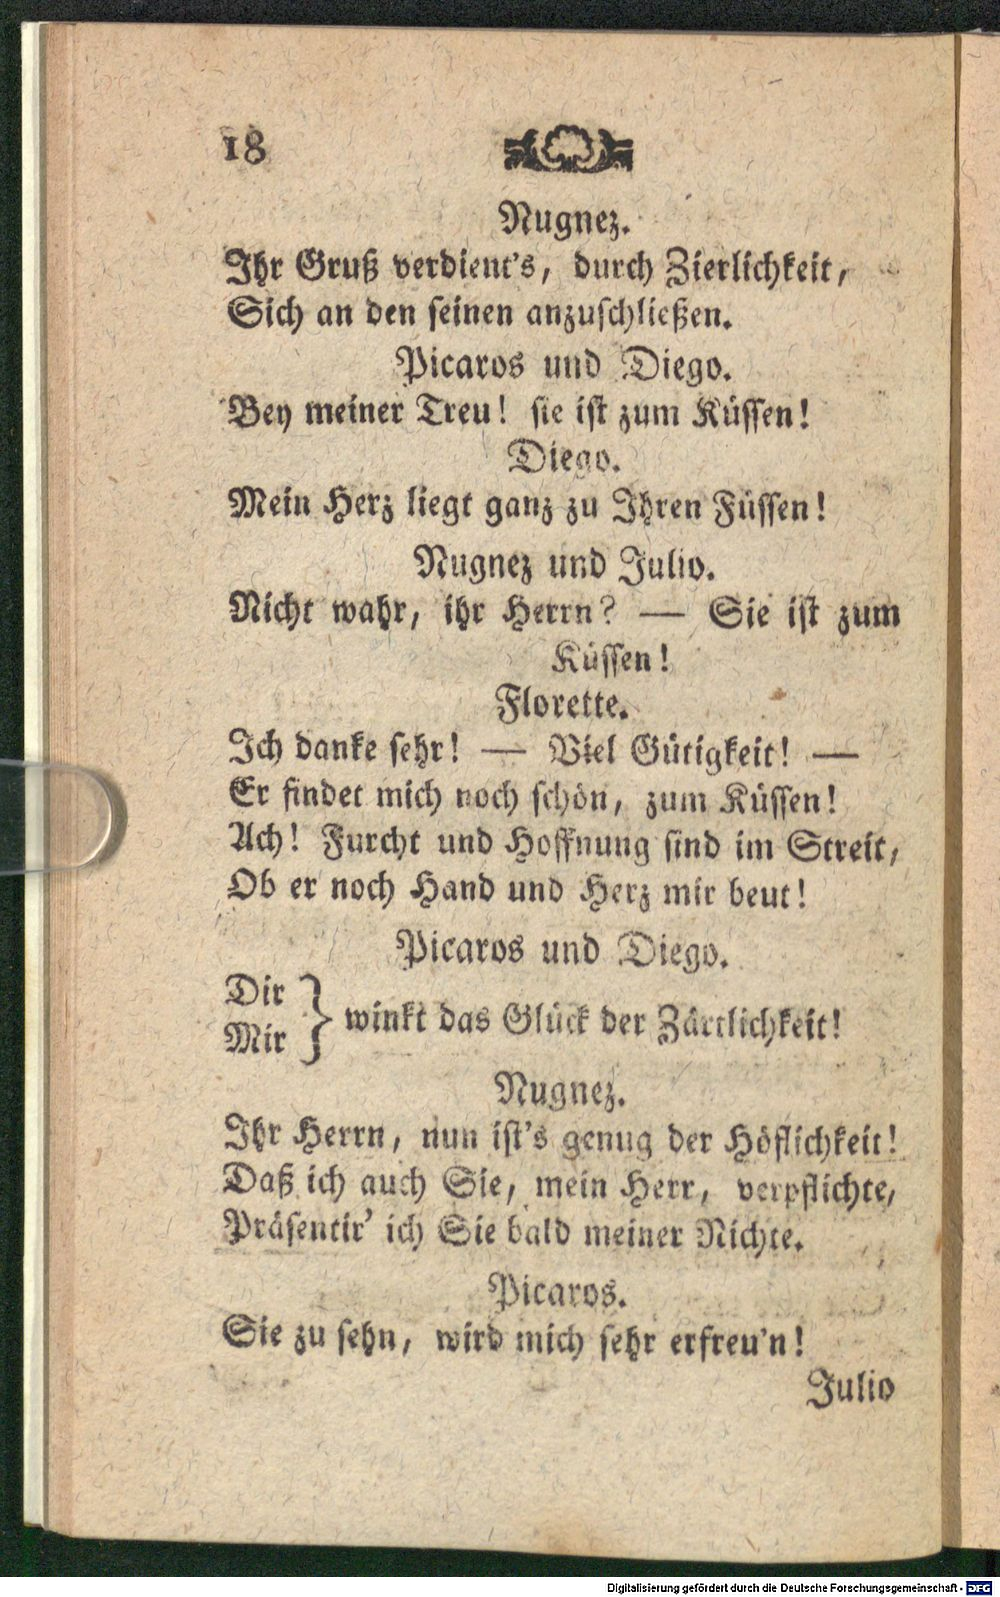 18
Nugnez.
Ihr Gruß verdient's, durch Zierlichkeit,
Sich an den seinen anzuschließen.
Picaros und Diego.
Bey meiner Treu! sie ist zum Küssen!
Diego.
Mein Herz liegt ganz zu Ihren Füssen!
Nugnez und Julio.
Nicht wahr, ihr Herrn? — Sie ist zum
Küssen!
Florette.
Ich danke sehr! — Viel Gütigkeit! —
Er findet mich noch schön, zum Küssen!
Ach! Furcht und Hoffnung sind im Streit,
Ob er noch Hand und Herz mir beut!
Picaros und Diego.
Dir
Mir } winkt das Glück der Zärtlichkeit!
Nugnez.
Ihr Herrn, nun ist's genug der Höflichkeit!
Daß ich auch Sie, mein Herr, verpflichte,
Präsentir' ich Sie bald meiner Nichte.
Picaros.
Sie zu sehn, wird mich sehr erfreu'n!
Julio
Digitalisierung gefördert durch die Deutsche Forschungsgemeinschaft - DFG